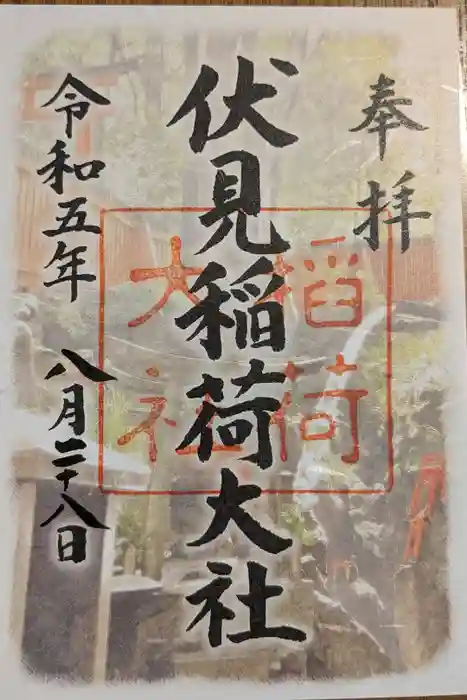 奉拝
伏見稲荷大社
稲荷
大社
令和五年
八月二十八日